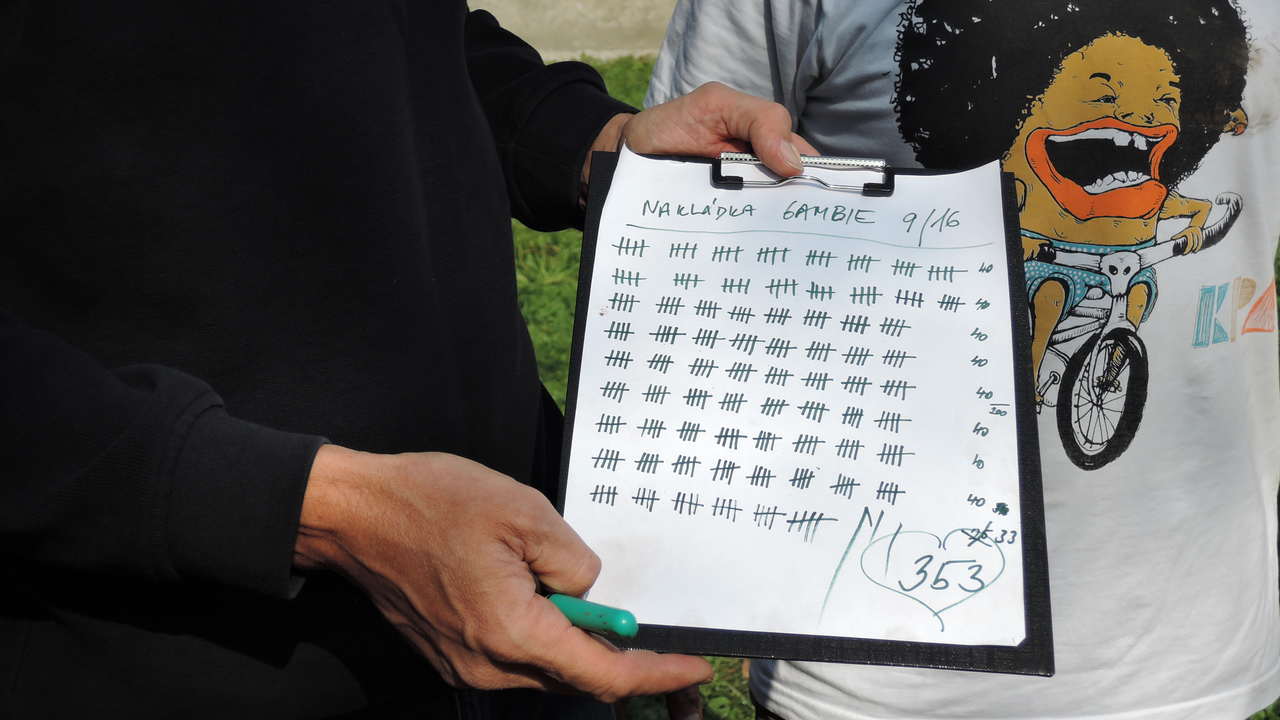 NAKLÁDKA GAMBIE 9/16
40
40
40
40
40
200
40
40
40
33
353